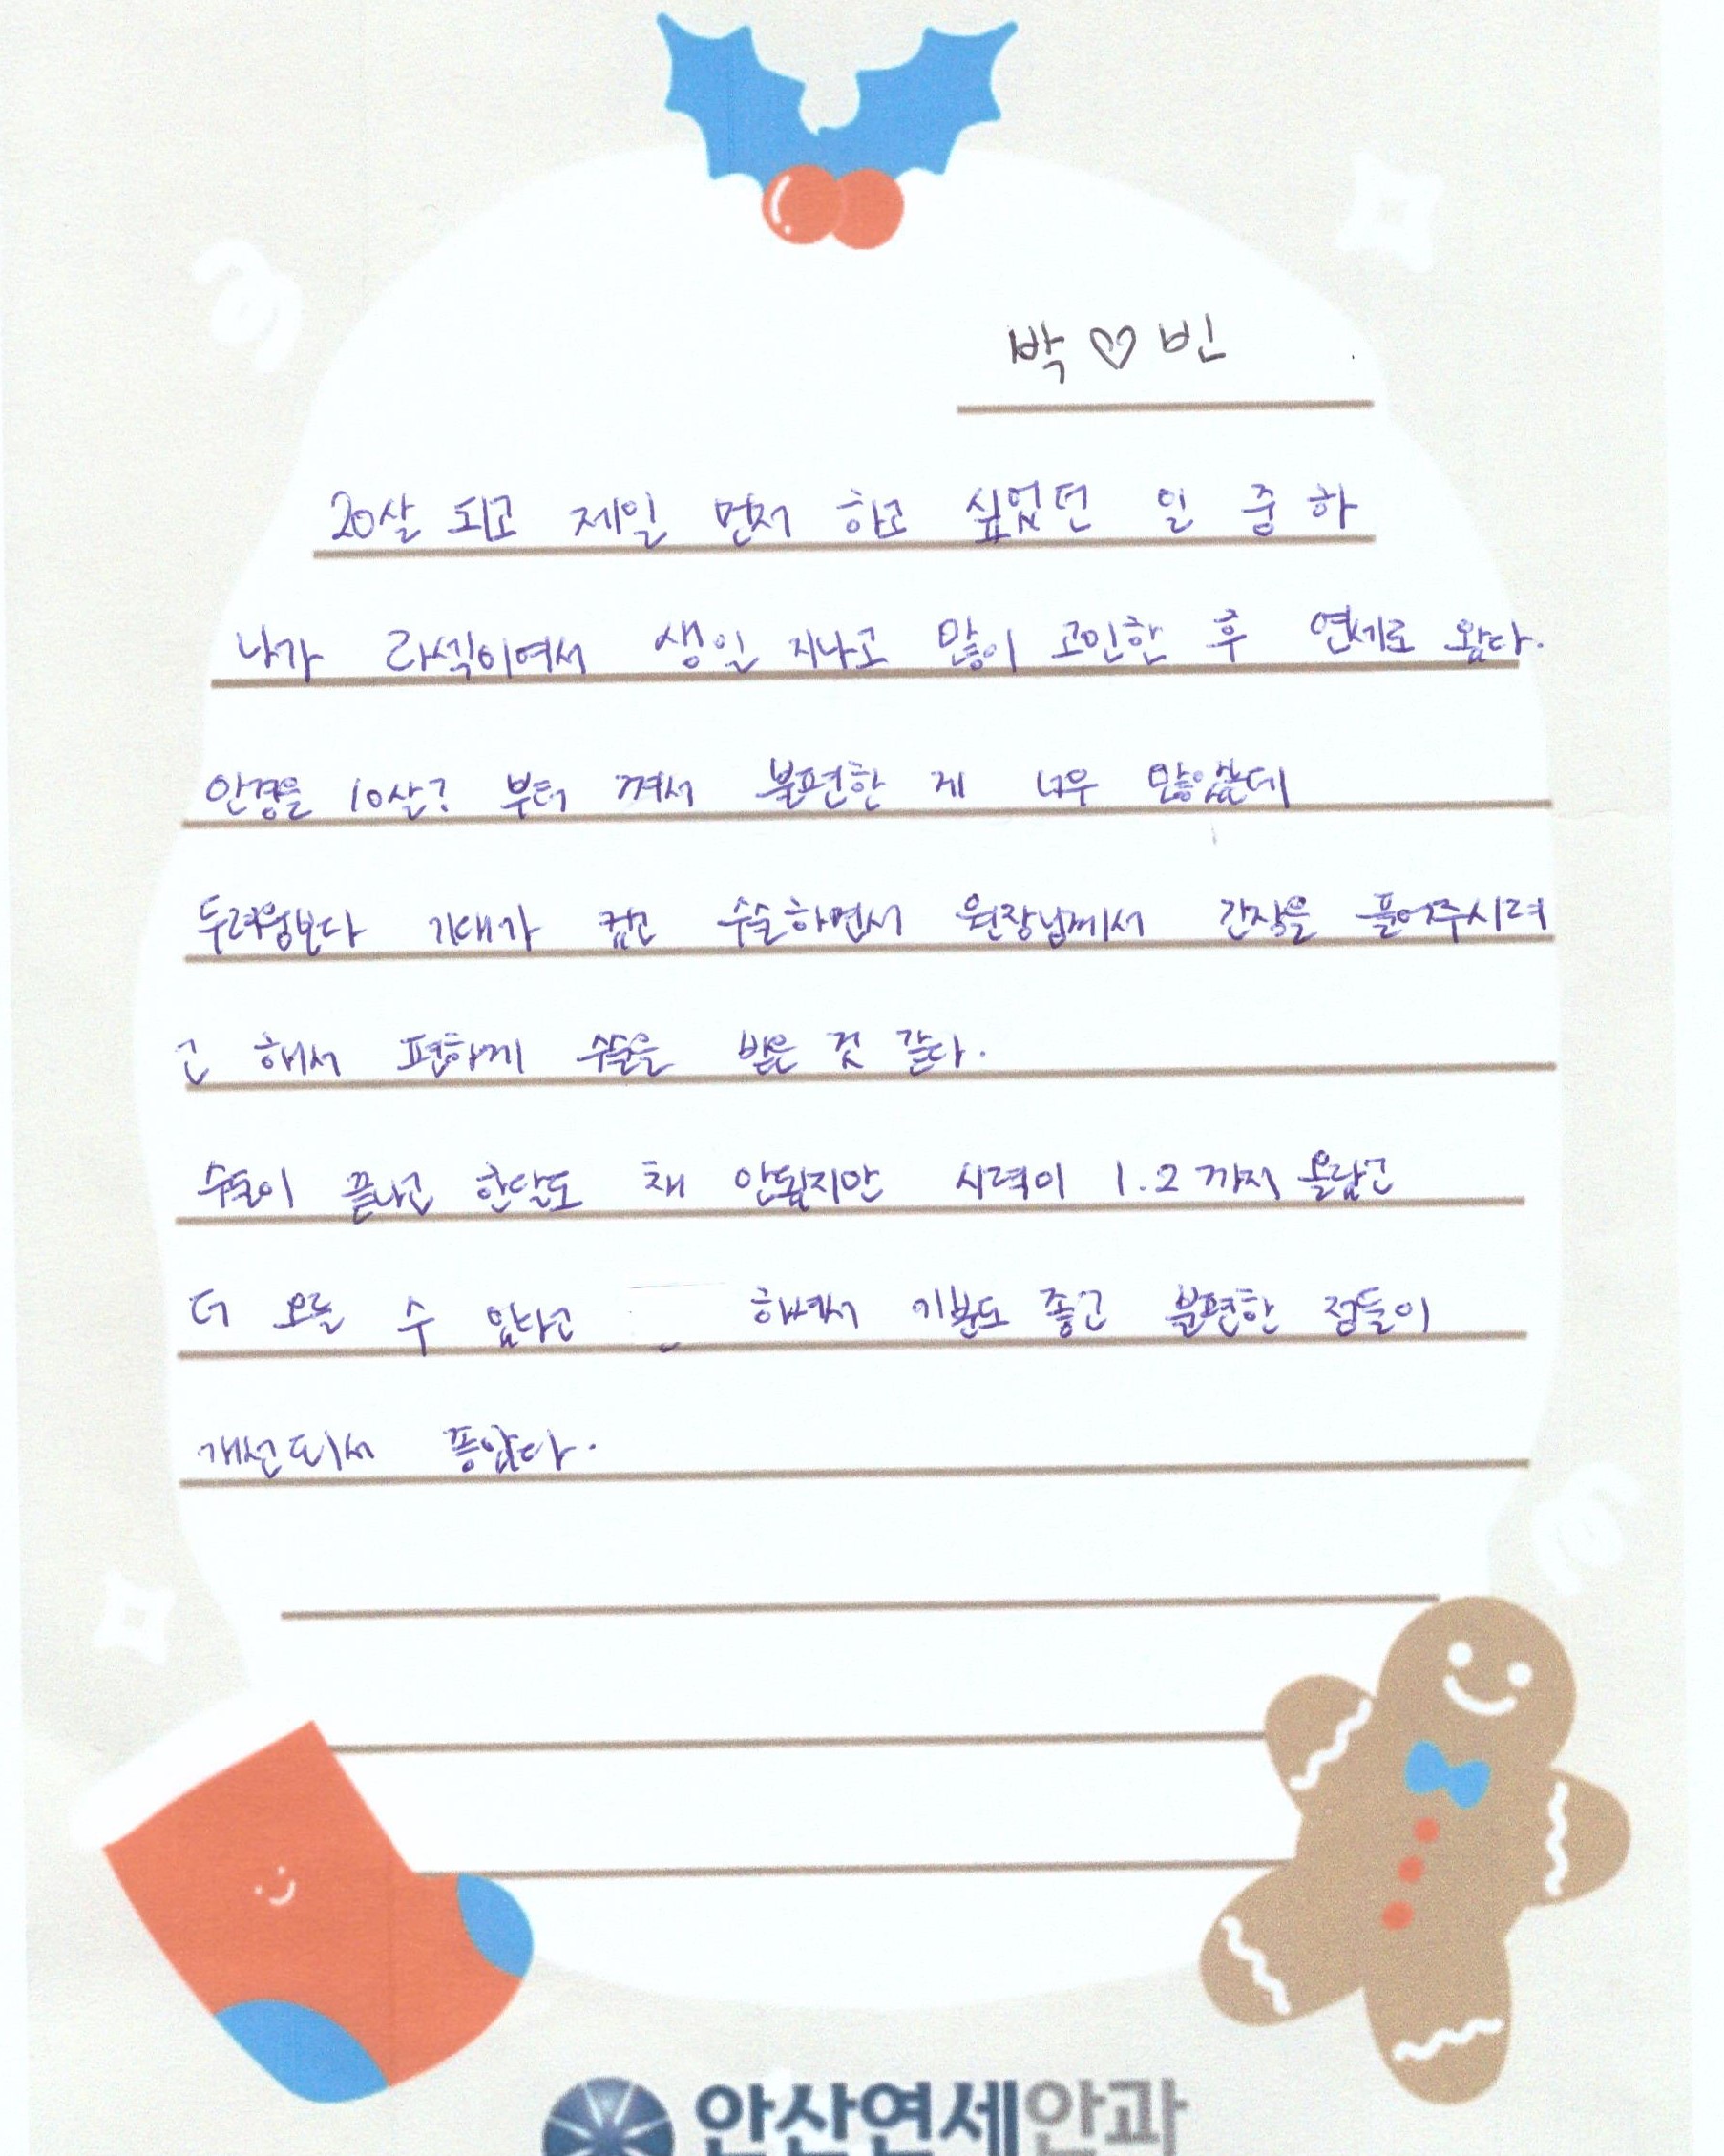 박♡빈
20살 되고 제일 먼저 하고 싶었던 일 중 하
나가 라섹이여서 생일 지나고 많이 고민한 후 연세로 왔다.
안경을 10살? 부터 껴서 불편한 게 너무 많았는데
두려움보다 기대가 컸고 수술하면서 원장님께서 긴장을 풀어주시려
고 해서 편하게 수술을 받은 것 같다.
수술이 끝나고 한달도 채 안됬지만 시력이 1.2까지 올랐고
더 오를 수 있다고 하셔서 기분도 좋고 불편한 점들이
개선되서 좋았다.
안산연세안과